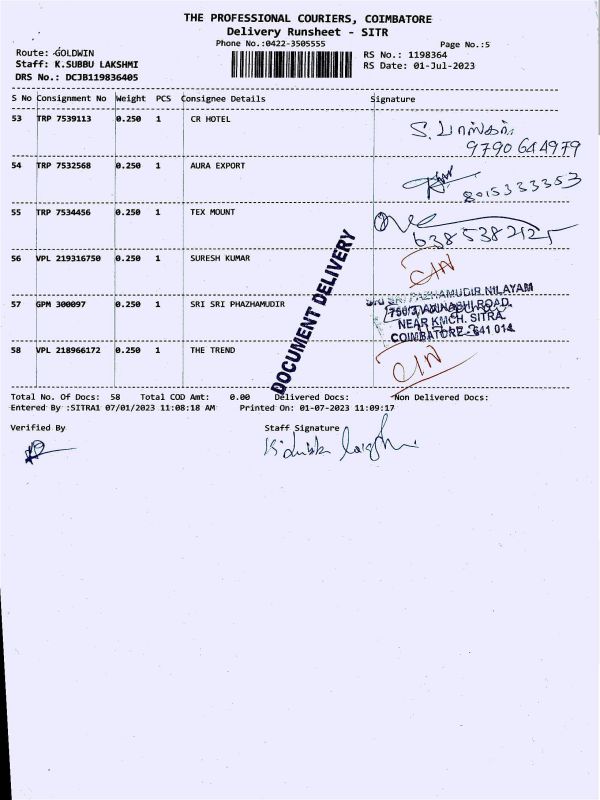 THE PROFESSIONAL COURIERS, COIMBATORE
Delivery Runsheet - SITR
Phone No.:0422-3505555
Page No.:5
Route: GOLDWIN
RS No.: 1198364
Staff: K.SUBBU LAKSHMI
RS Date: 01-Jul-2023
DRS No.: DCJB119836405
S No Consignment No Weight PCS Consignee Details Signature
53 TRP 7539113 0.250 1 CR HOTEL
9790644979
54 TRP 7532568 0.250 1 AURA EXPORT
8015333353
55 TRP 7534456 0.250 1 TEX MOUNT
6385382125
56 VPL 219316750 0.250 1 SURESH KUMAR
C/N
57 GPM 300097 0.250 1 SRI SRI PHAZHAMUDIR
SRI SRI PAZHAMUDIR NILAYAM
AVINASHI ROAD,
NEAR KMCH, SITRA
COIMBATORE - 641 014
58 VPL 218966172 0.250 1 THE TREND
C/N
DOCUMENT DELIVERY
Total No. Of Docs: 58 Total COD Amt: 0.00 Delivered Docs: Non Delivered Docs:
Entered By :SITRA1 07/01/2023 11:08:18 AM Printed On: 01-07-2023 11:09:17
Verified By
Staff Signature